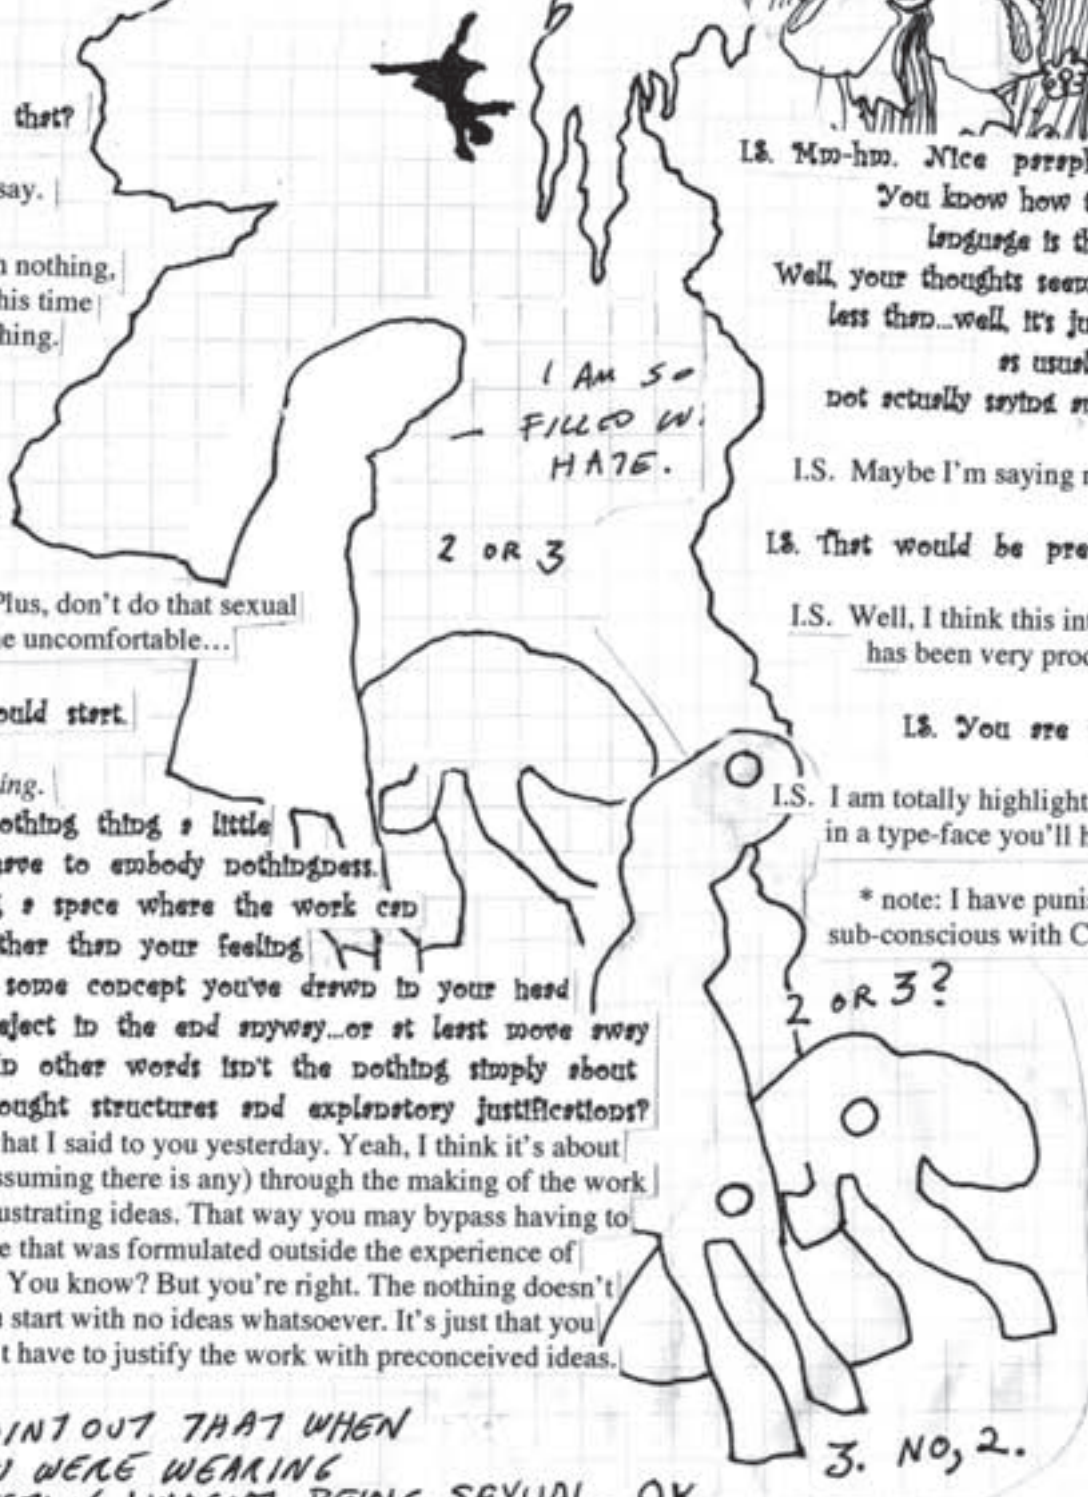 that?
say.
nothing,
his time
hing.
Plus, don't do that sexual
e uncomfortable...
ould start.
ing.
othing thing a little
ave to embody nothingness.
a space where the work can
ther than your feeling
some concept you've drawn in your head
eject in the end anyway...or at least move away
n other words isn't the nothing simply about
ought structures and explanatory justifications?
hat I said to you yesterday. Yeah, I think it's about
ssuming there is any) through the making of the work
ustrating ideas. That way you may bypass having to
e that was formulated outside the experience of
You know? But you're right. The nothing doesn't
start with no ideas whatsoever. It's just that you
t have to justify the work with preconceived ideas.
INT OUT THAT WHEN
WERE WEARING
BEING SEXUAL OK
I AM SO
FILLED W.
HATE.
2 OR 3
I.S. Mm-hm. Nice paraph
You know how t
language is th
Well, your thoughts seem
less than...well, it's ju
as usual
not actually saying a
I.S. Maybe I'm saying
I.S. That would be pre
I.S. Well, I think this int
has been very proc
I.S. You are
I.S. I am totally highlight
in a type-face you'll h
* note: I have puni
sub-conscious with C
2 OR 3?
3. NO, 2.